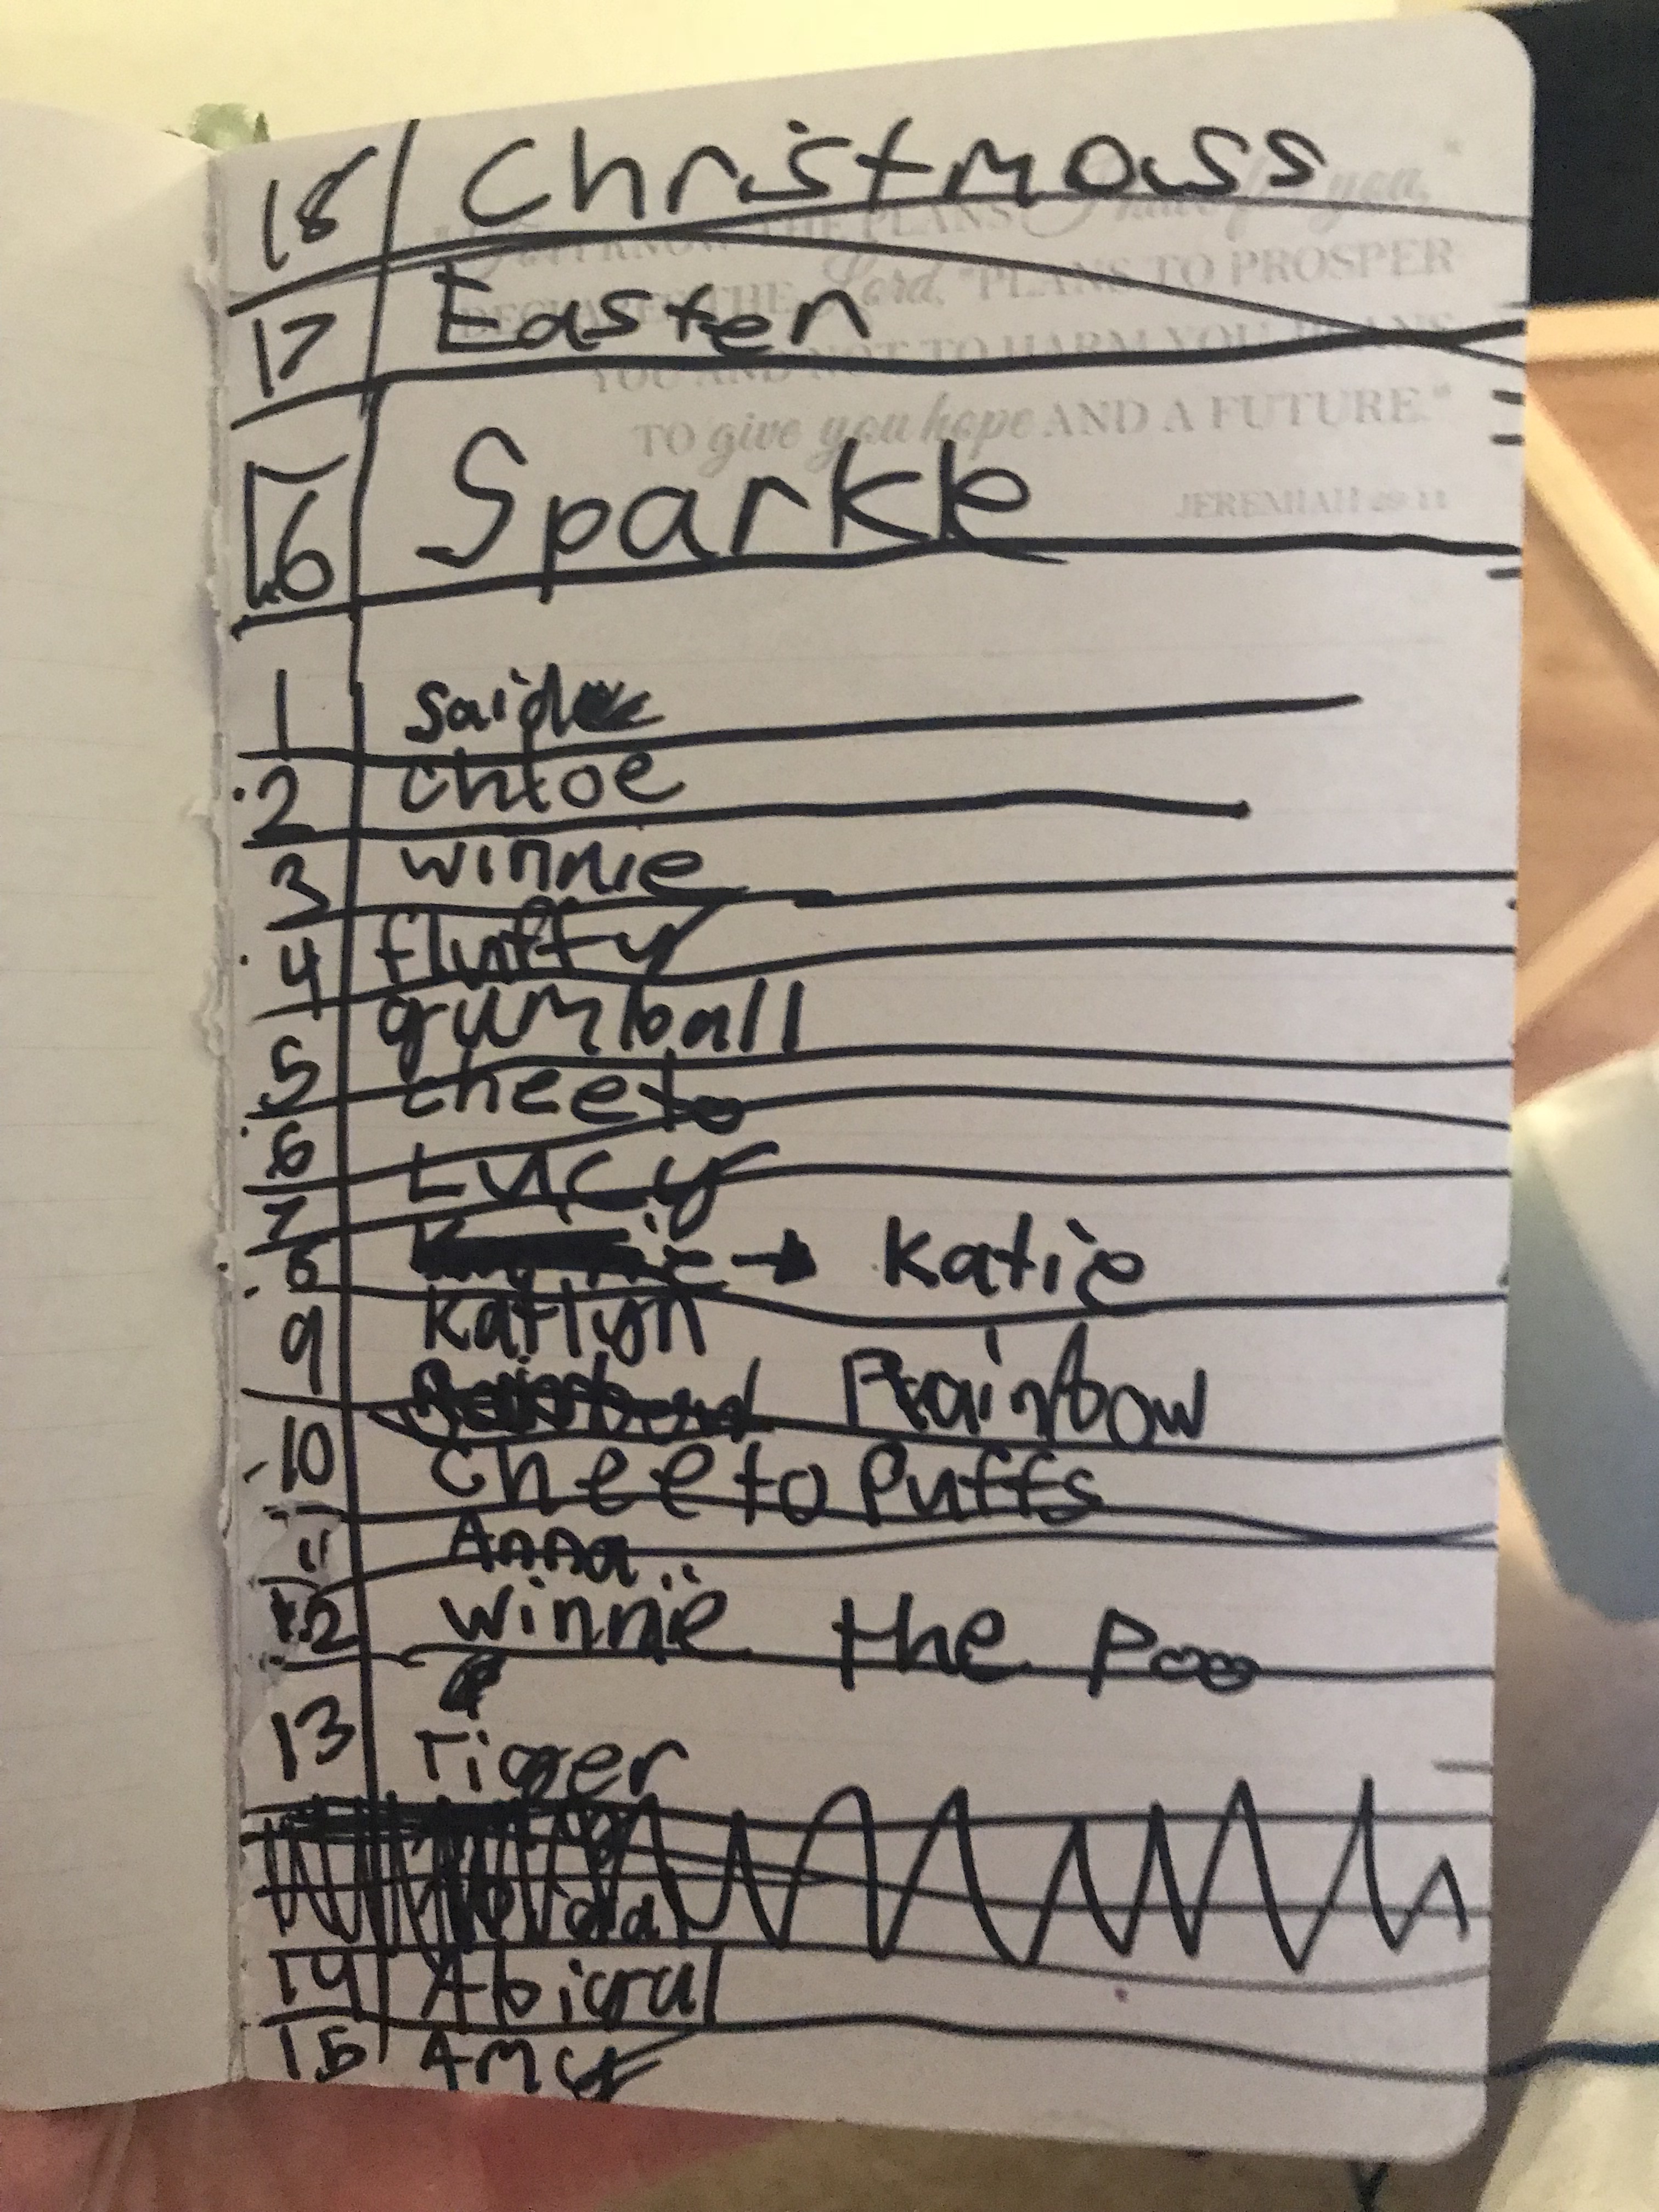 18 Christmass
"For I KNOW THE PLANS I have for you,"
DECLARES THE Lord, "PLANS TO PROSPER
17 Easter
YOU AND NOT TO HARM YOU, PLANS
TO give you hope AND A FUTURE."
16 Sparkle
JEREMIAH 29:11
1 Saide
2 chloe
3 winnie
4 fluffy
5 gumball
6 cheeto
7 Lucy
8 → Katie
9 Katlyn
Rainbow
10 Cheeto Puffs
11 Anna
12 Winnie the Poo
13 Tigger
14 Abigral
15 Amy